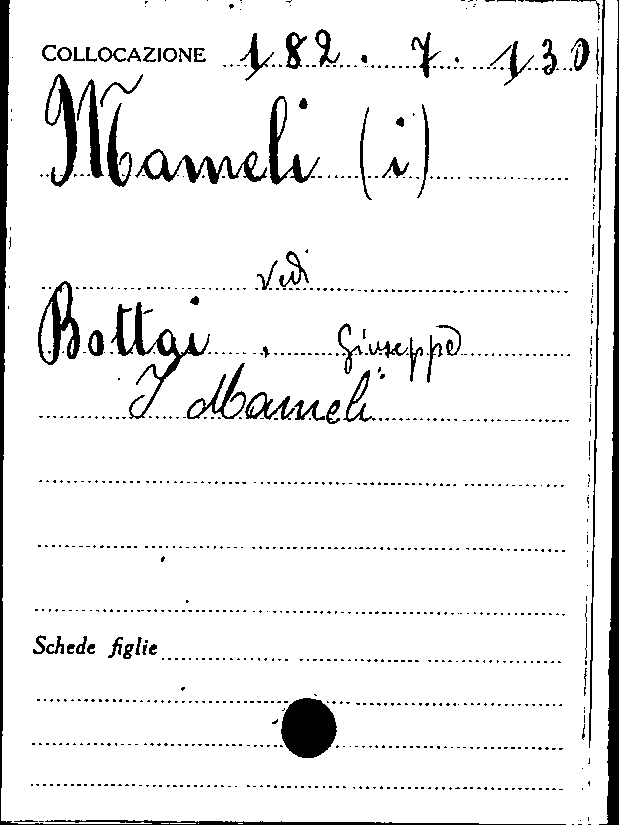 COLLOCAZIONE 182. 7. 130
Mameli (i)
vedi
Bottai, Giuseppe
I Mameli
Schede figlie